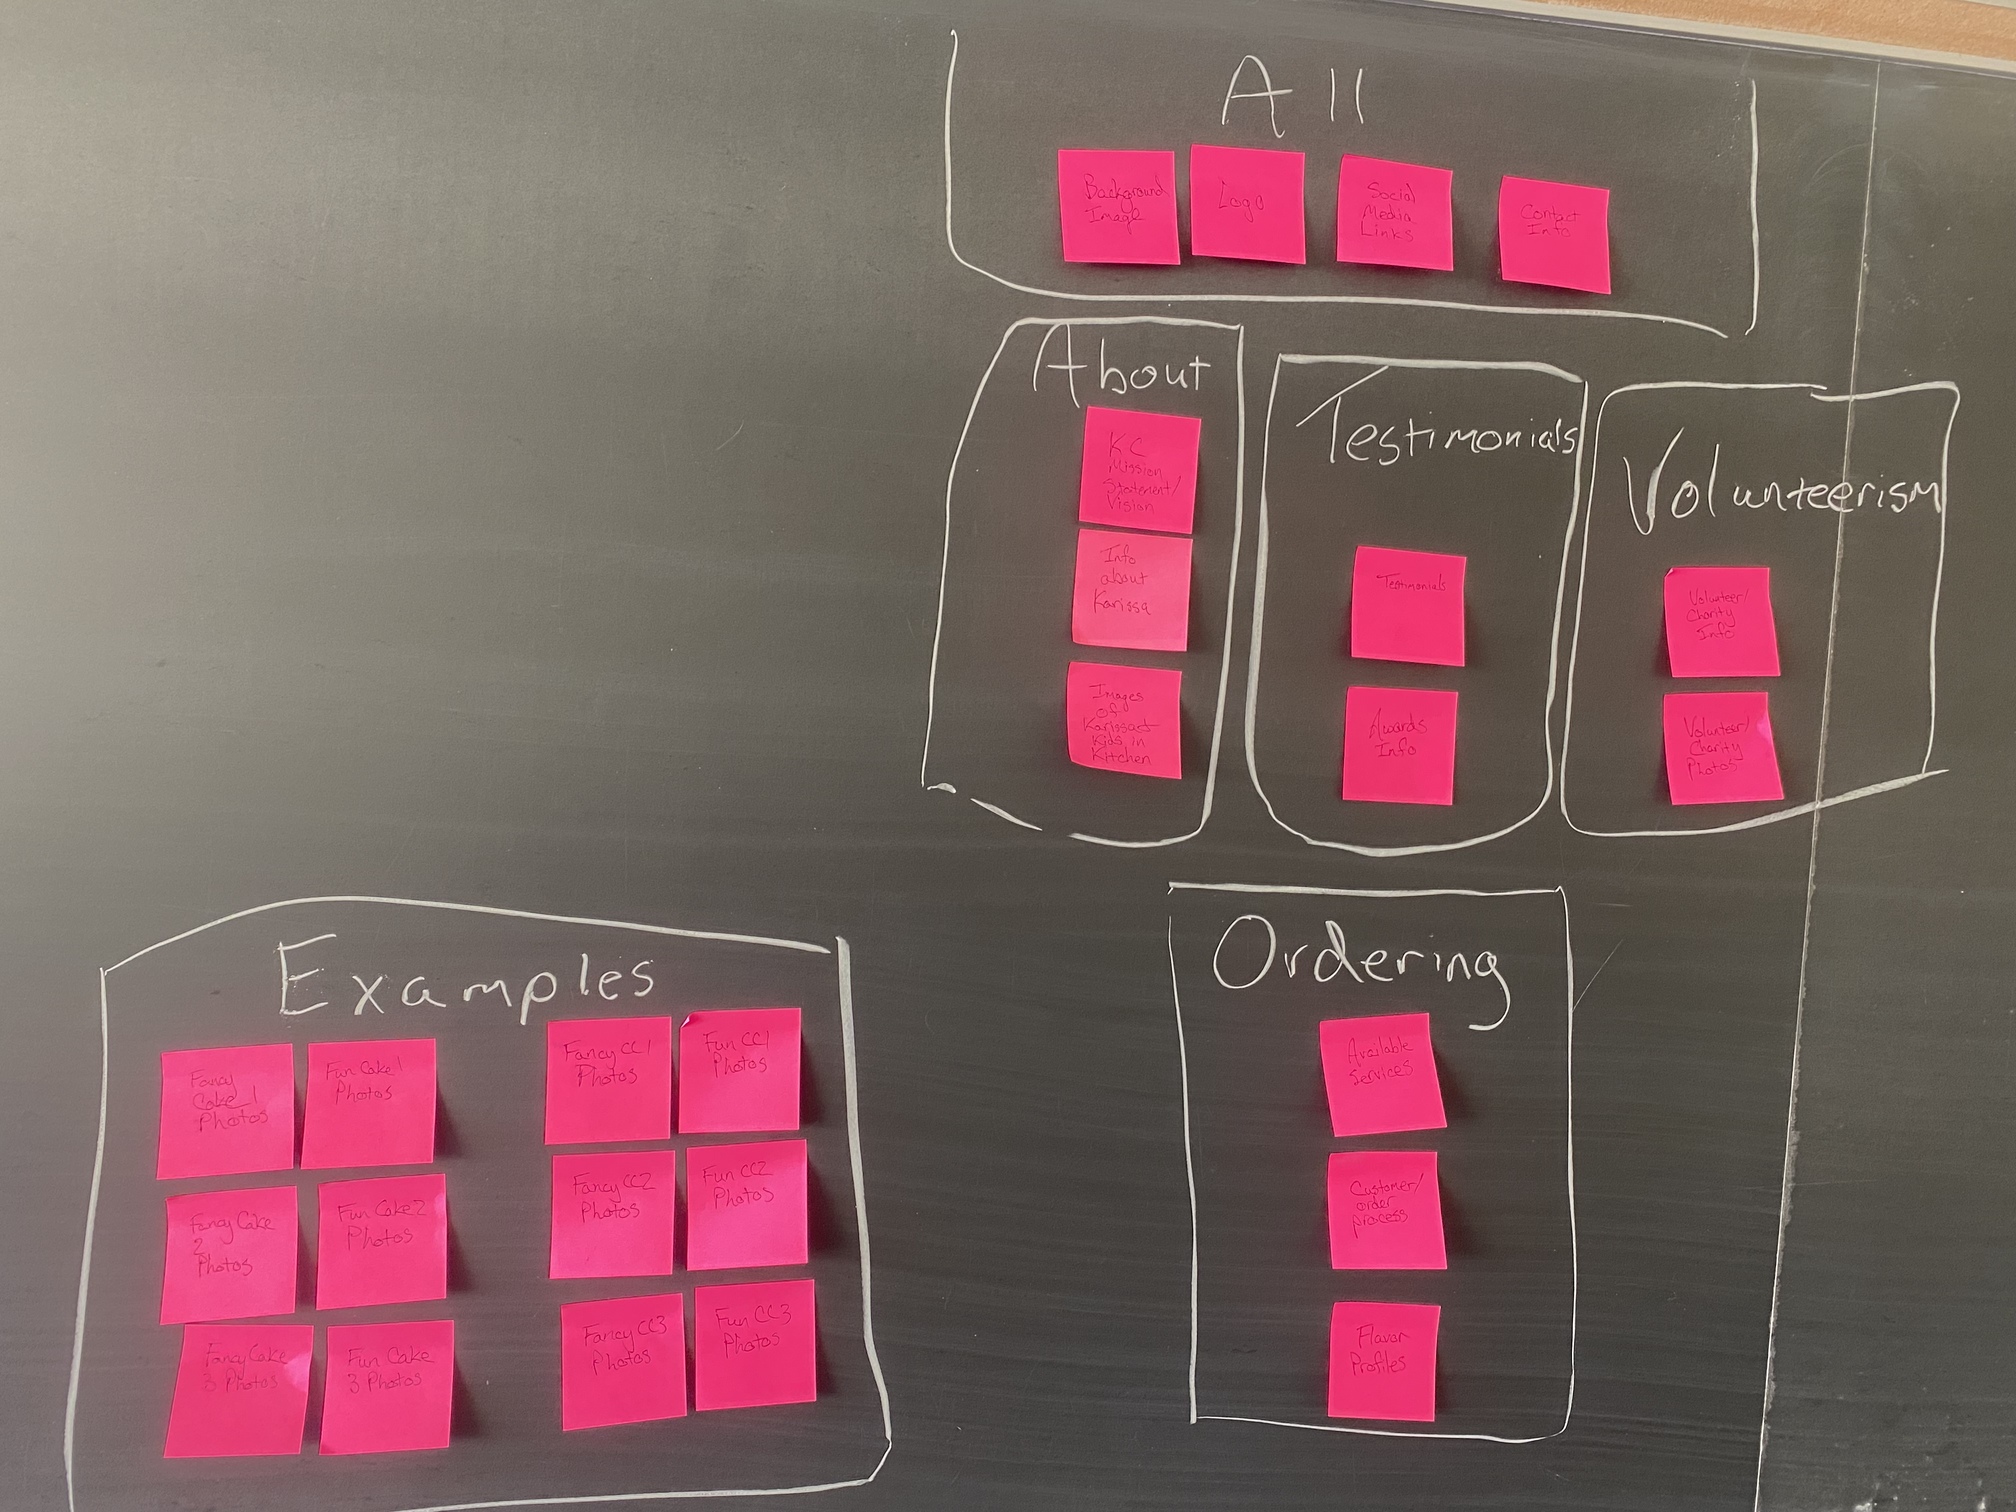 All
Background
Image
Logo
Social
Media
Links
Contact
Info
About
KC
Mission
Statement/
Vision
Info
about
Karissa
Images
of
Karissa+
Kids in
Kitchen
Testimonials
Testimonials
Awards
Info
Volunteerism
Volunteer/
Charity
Info
Volunteer/
Charity
Photos
Examples
Fancy
Cake 1
Photos
Fun Cake 1
Photos
Fancy CC1
Photos
Fun CC1
Photos
Fancy Cake
2
Photos
Fun Cake 2
Photos
Fancy CC2
Photos
Fun CC2
Photos
Fancy Cake
3 Photos
Fun Cake
3 Photos
Fancy CC3
Photos
Fun CC3
Photos
Ordering
Available
Services
Customer/
order
process
Flavor
Profiles